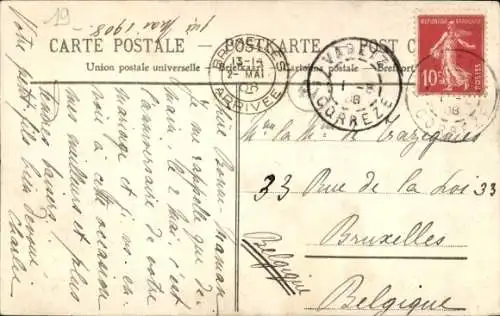 19
1er Mai 1908.
CARTE POSTALE - POSTKARTE - POST C
Union postale universelle
BRUXELLES
13-14
2-MAI
08
ARRIVEE
CORREZE
REPUBLIQUE FRANÇAISE
10c
POSTES
Mme la Mise de Trazegnies
33 Rue de la Loi 33
Bruxelles
Belgique
Belgique
Chère Bonne-Maman
Je me rappelle que demain le 2 mai c'est
l'anniversaire de votre
mariage et
à cette occasion
mes meilleurs et plus
tendres baisers.
Votre petit fils bien dévoué
Charles